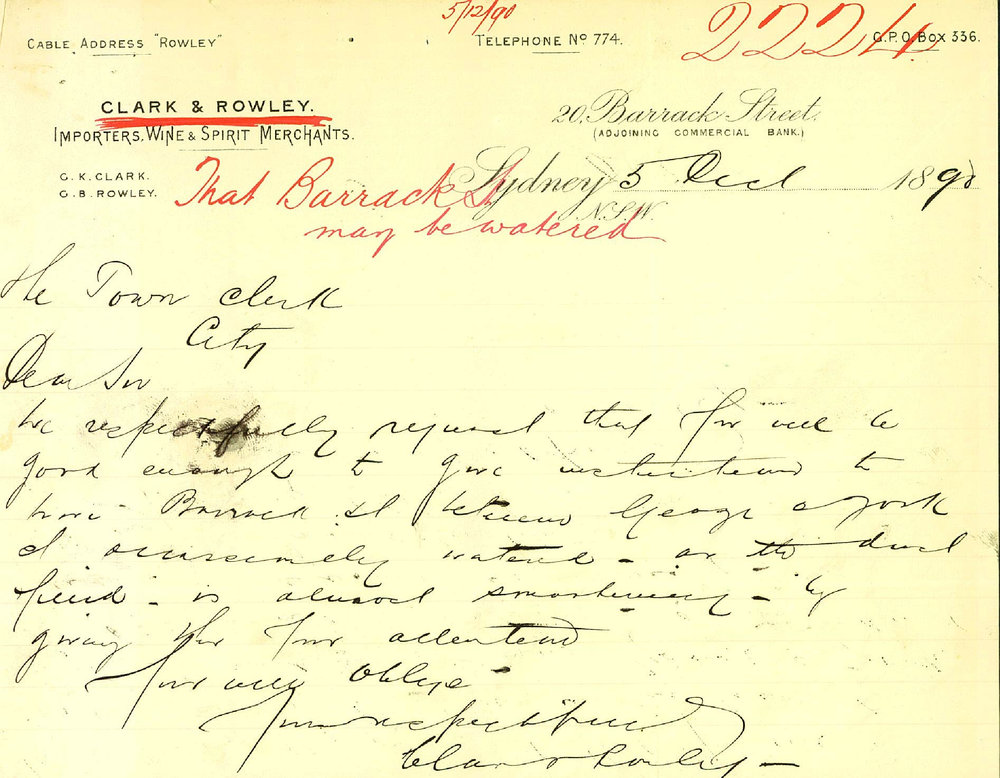 5/12/90
CABLE ADDRESS "ROWLEY"
TELEPHONE No 774.
2224
G.P.O. BOX 336.
CLARK & ROWLEY.
IMPORTERS, WINE & SPIRIT MERCHANTS.
20, Barrack Street,
(ADJOINING COMMERCIAL BANK.)
C. K. CLARK.
G. B. ROWLEY.
Sydney 5 Decr 1890
N.S.W.
That Barrack St
may be watered
The Town Clerk
City
Dear Sir
We respectfully request that you will be
good enough to give instructions to
have Barrack St between George & York
St occasionally watered - as the dust
- is almost smothering - by
giving this your attention
you will oblige
Yours respectfully
Clark & Rowley -